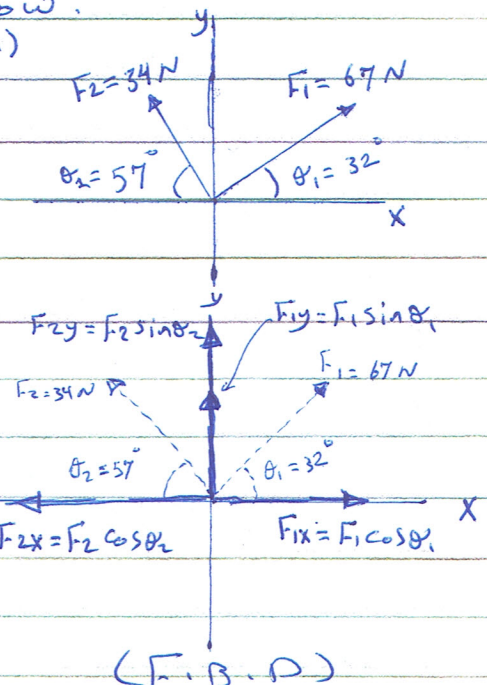 ow.
)
y
F2 = 34 N
F1 = 67 N
θ2 = 57°
θ1 = 32°
x
y
F2y = F2 sinθ2
F1y = F1 sinθ1
F2 = 34 N
F1 = 67 N
θ2 = 57°
θ1 = 32°
x
F2x = F2 cosθ2
F1x = F1 cosθ1
(F.B.D)